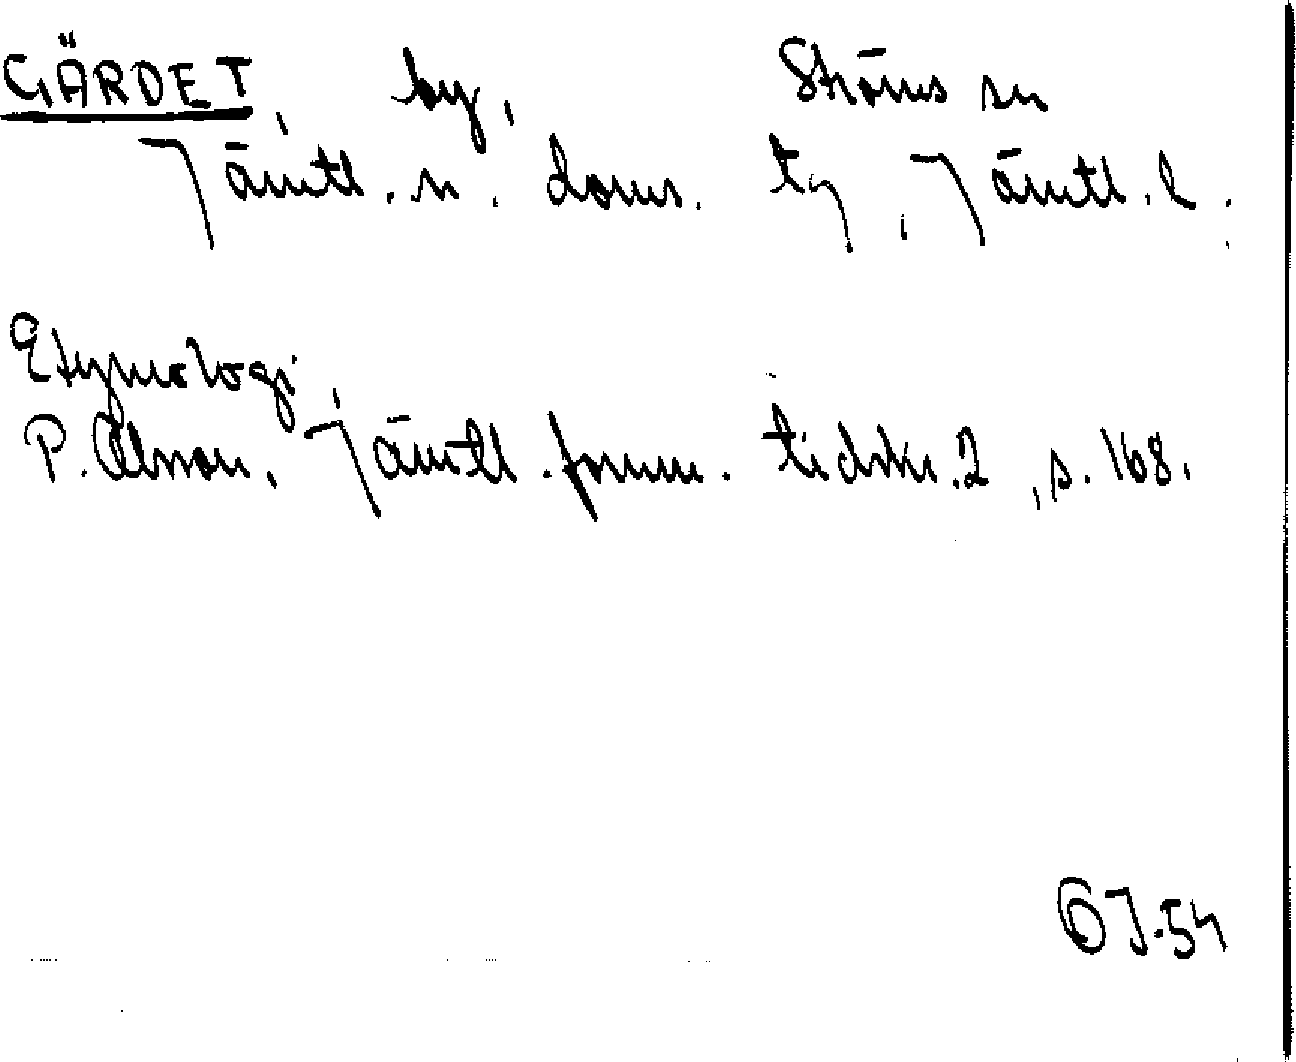 GÄRDET, by, Ströms sn
Jämtl. n. doms. tg, Jämtl. l.;
Etymologi,
P. Olsson, Jämtl. fornm. tidskr. 2, s. 168.
OJ.54